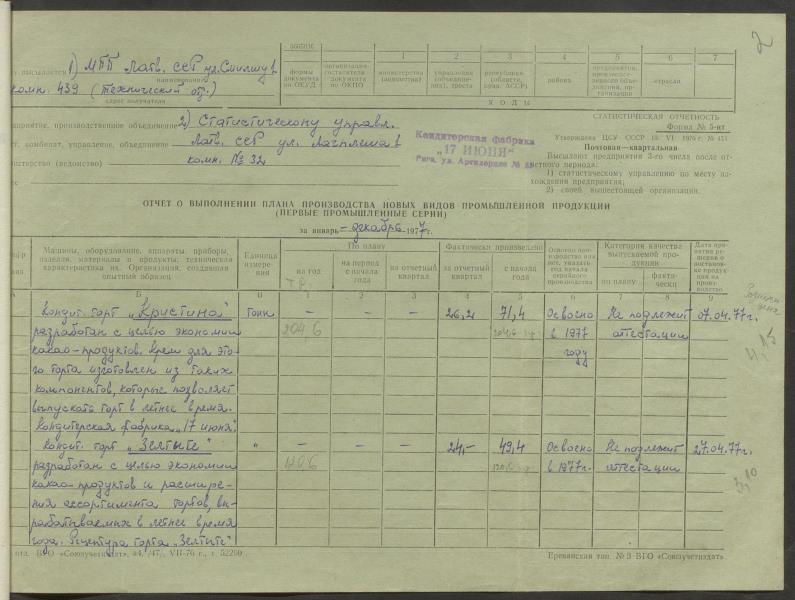 2
0605016
1 2 3 4 5 6 7
формы документа по ОКУД
организации-составителя документа по ОКПО
министерства (ведомства)
управления (объединения), треста
республики (области, края, АССР)
района
предприятия, производственного объединения, организации
отрасли
К О Д Ы
у высылается 1) МПП Латв. ССР ул. Смилшу 1
наименование
комн. 439 (Технический от.)
адрес получателя
СТАТИСТИЧЕСКАЯ ОТЧЕТНОСТЬ
Форма № 5-нт
Утверждена ЦСУ СССР
Почтовая—квартальная
Высылают предприятия 3-го числа после отчетного периода:
1) статистическому управлению по месту нахождения предприятия;
2) своей вышестоящей организации.
дприятие, производственное объединение 2) Статистическому управл.
ст, комбинат, управление, объединение Латв. ССР ул. Лачплеша 1
истерство (ведомство) комн. № 32
Кондитерская фабрика
„17 ИЮНЯ"
Рига, ул. Артилерияс №
ОТЧЕТ О ВЫПОЛНЕНИИ ПЛАНА ПРОИЗВОДСТВА НОВЫХ ВИДОВ ПРОМЫШЛЕННОЙ ПРОДУКЦИИ
(ПЕРВЫЕ ПРОМЫШЛЕННЫЕ СЕРИИ)
за январь – декабрь 1977 г.
Машины, оборудование, аппараты, приборы, изделия, материалы и продукты, техническая характеристика их. Организация, создавшая опытный образец
Единица измерения
По плану
на год
на период с начала года
на отчетный квартал
Фактически произведено
за отчетный квартал
с начала года
Освоено производство или нет, указать год начала серийного производства
Категория качества выпускаемой продукции
по плану
фактически
Дата принятия решения о постановке продукции на производство
Б В 1 2 3 4 5 6 7 8 9
Кондит. торт „Кристина" Тонн – – – 26,2 71,4 Освоено Не подлежит 07.04.77г.
разработан с целью экономии 204.6 в 1977 аттестации
какао-продуктов. Крем для это- году
го торта изготовлен из таких
компонентов, которые позволяет
выпускать торт в летнее время.
Кондитерская фабрика „17 июня".
Кондит. торт „Зелтите" " – – – 24,– 49,4 Освоено Не подлежит 27.04.77г.
разработан с целью экономии в 1977г. аттестации
какао-продуктов и расшире-
ния ассортимента тортов, вы-
рабатываемых в летнее время
года. Рецептура торта „Зелтите"
отд. ВГО «Союзучетиздат», VII-76 г., т. 52290
Ереванская тип. № 3 ВГО «Союзучетиздат».
3,10